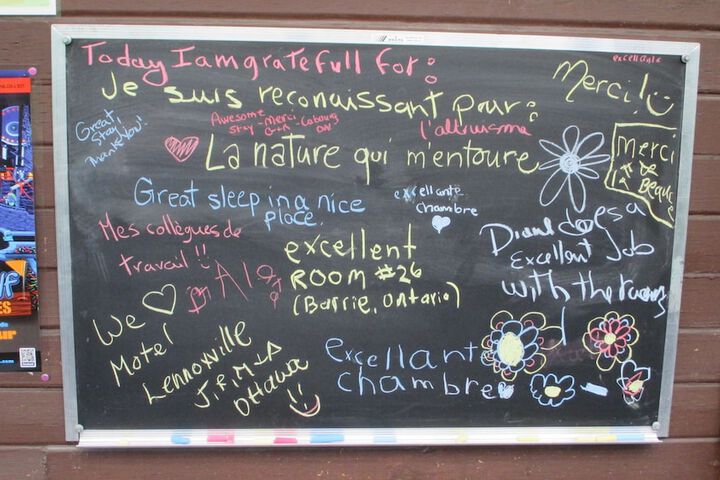 Today I am gratefull for:
excellante
Je suis reconaissant pour:
Merci!
Great
stay!
Thank You!
Awesome
stay - Merci
Cobourg
ON
l'altruisme
La nature qui m'entoure
Merci
de
la Beauce
Great sleep in a nice
place.
excellante
chambre
Mes collègues de
travail!!
excellent
ROOM #26
(Barrie, Ontario)
Diane does a
Excellent Job
with the rooms
We ♡
Motel
Lennoxville
J, P, M + A
Ottawa
excellante
chambre